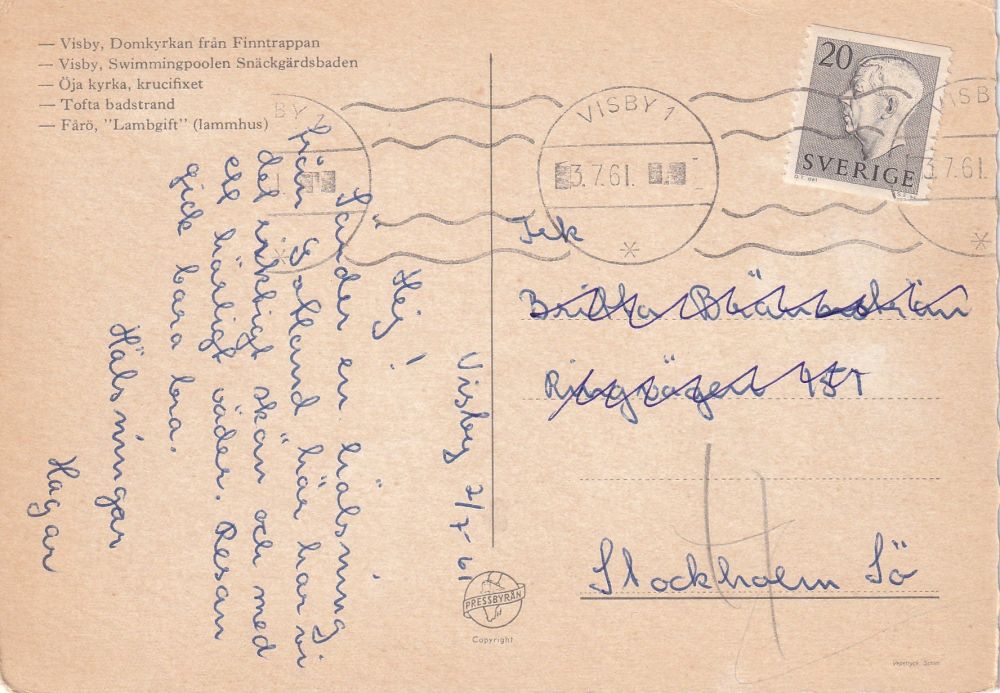 — Visby, Domkyrkan från Finntrappan
— Visby, Swimmingpoolen Snäckgärdsbaden
— Öja kyrka, krucifixet
— Tofta badstrand
— Fårö, "Lambgift" (lammhus)
20
SVERIGE
BY 1
VISBY 1
3.7.61.
VISB
3.7.61
Visby 2/7-61
Hej!
Sänder en hälsning
från Gotland här har vi
det riktigt skön och med
ett härligt väder. Resan
gick bara bra.
Hälsningar
Hagar
Fek
Britta
Ringvägen
Stockholm Sö
PRESSBYRÅN
Copyright